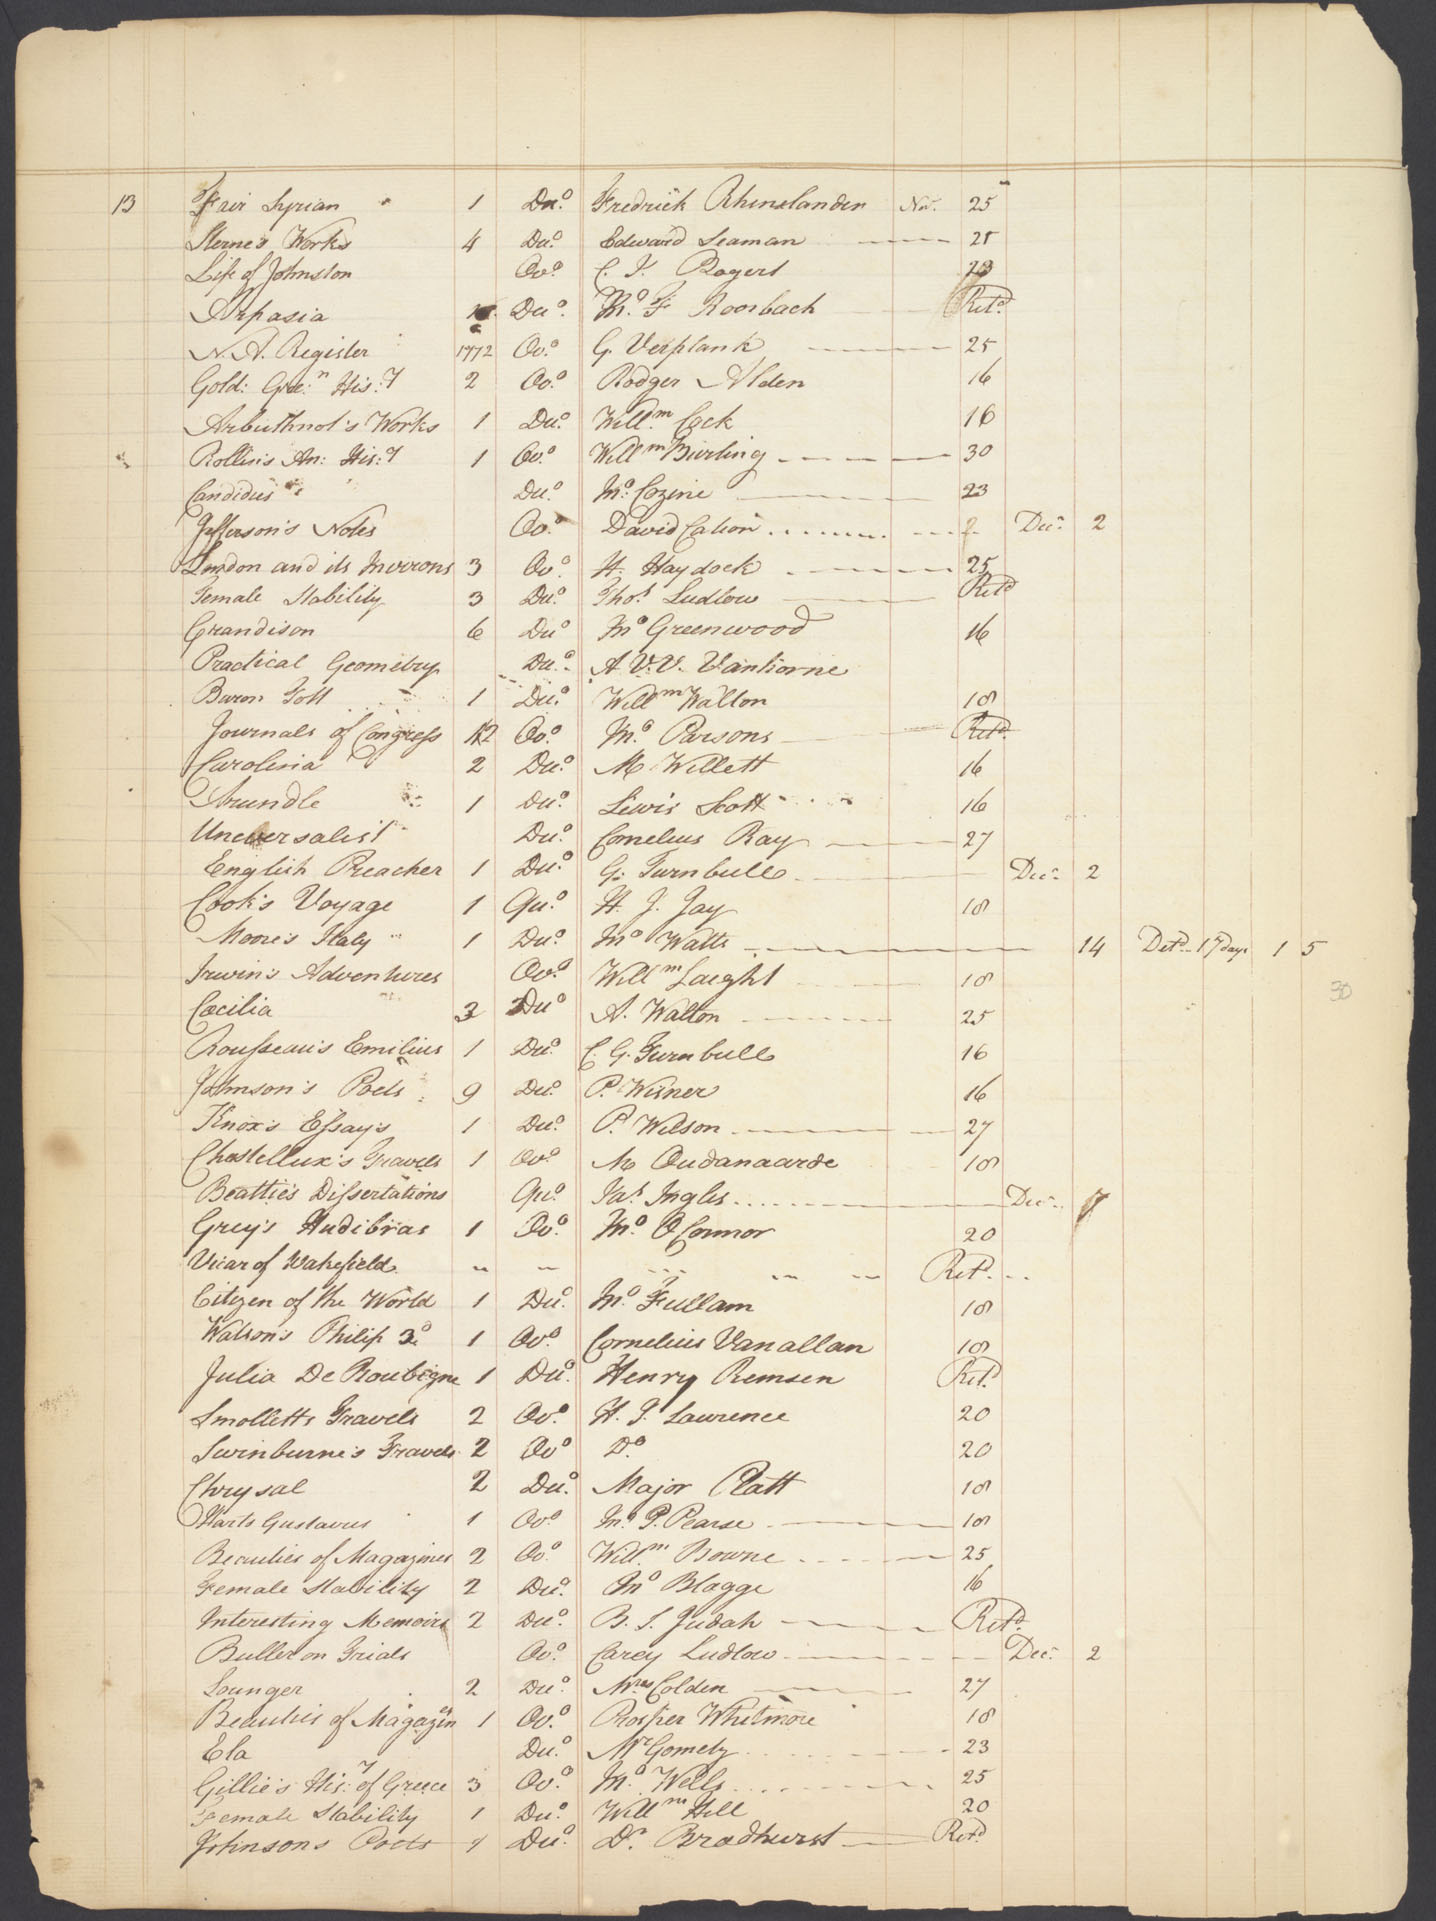 13 Fair Syrian 1 Duo. Fredrick Rhinelander Nov. 25
Sterne's Works 4 Duo. Edward Seaman 25
Life of Johnston Ovo. C. T. Rogers
Aspasia Duo. Jno. F Roorbach Retd.
N. A. Register 1772 Ovo. G. Verplank 25
Gold: Gre:n His:y 2 Ovo. Rodger Alden 16
Arbuthnot's Works 1 Duo. Willm. Cock 16
Rollin's An: His:y 1 Ovo. Willm Burling 30
Candidus Duo. Jno. Cozine 23
Jefferson's Notes Ovo. David Cation Dec. 2
London and its Invirons 3 Ovo. H. Haydock 25
Female Stability 3 Duo. Thos. Ludlow Retd
Grandison 6 Duo Jno Greenwood 16
Practical Geometry Duo. A. V. V. Vanhorne
Baron Tott 1 Duo. Willm Walton 18
Journals of Congress 12 Ovo. Jno. Parsons Retd.
Carolina 2 Duo. M Willett 16
Arundle 1 Duo. Lewis Scott 16
Universalist Duo. Cornelius Ray 27
English Preacher 1 Duo. G. Turnbull Dec. 2
Cook's Voyage 1 Quo. H. J. Jay 18
Moore's Italy 1 Duo. Jno Watts 14 Detd. 17 days 1 5
Irwin's Adventures Ovo. Willm Laight 18
30
Cæcilia 3 Duo A. Walton 25
Rousseau's Emilius 1 Duo. C. G. Turnbull 16
Johnson's Poets 9 Duo. P. Wisner 16
Knox's Essays 1 Duo. P. Wilson 27
Chastellux's Travels 1 Ovo M Oudanaarde 18
Beattie's Dissertations Quo. Jas. Ingles Dec.
Grey's Hudibras 1 Ovo. Jno. O Connor 20
Vicar of Wakefield Retd.
Citizen of the World 1 Duo. Jno. Fullam 18
Watson's Philip 3d 1 Ovo. Cornelius Vanallan 18
Julia De Roubigne 1 Duo. Henry Remsen Retd.
Smolletts Travels 2 Ovo. H. T. Lawrence 20
Swinburne's Travels 2 Ovo Do. 20
Chrysal 2 Duo. Major Platt 18
Harts Gustavus 1 Ovo. Jno. P. Pearse 18
Beauties of Magazines 2 Ovo. Willm. Bowne 25
Female Stability 2 Duo. Jno Blagge 16
Interesting Memoirs 2 Duo. B. S. Judah Retd.
Buller on Trials Ovo. Carey Ludlow Dec. 2
Lounger 2 Duo. Mrs Colden 27
Beauties of Magazin 1 Ovo. Prosper Whitmore 18
Ela Duo. Mr Gomely 23
Gillie's His:y of Greece 3 Ovo. Jno. Wells 25
Female Stability 1 Duo. Willm Hill 20
Johnsons Poets 7 Duo. Dr. Bradhurst Retd